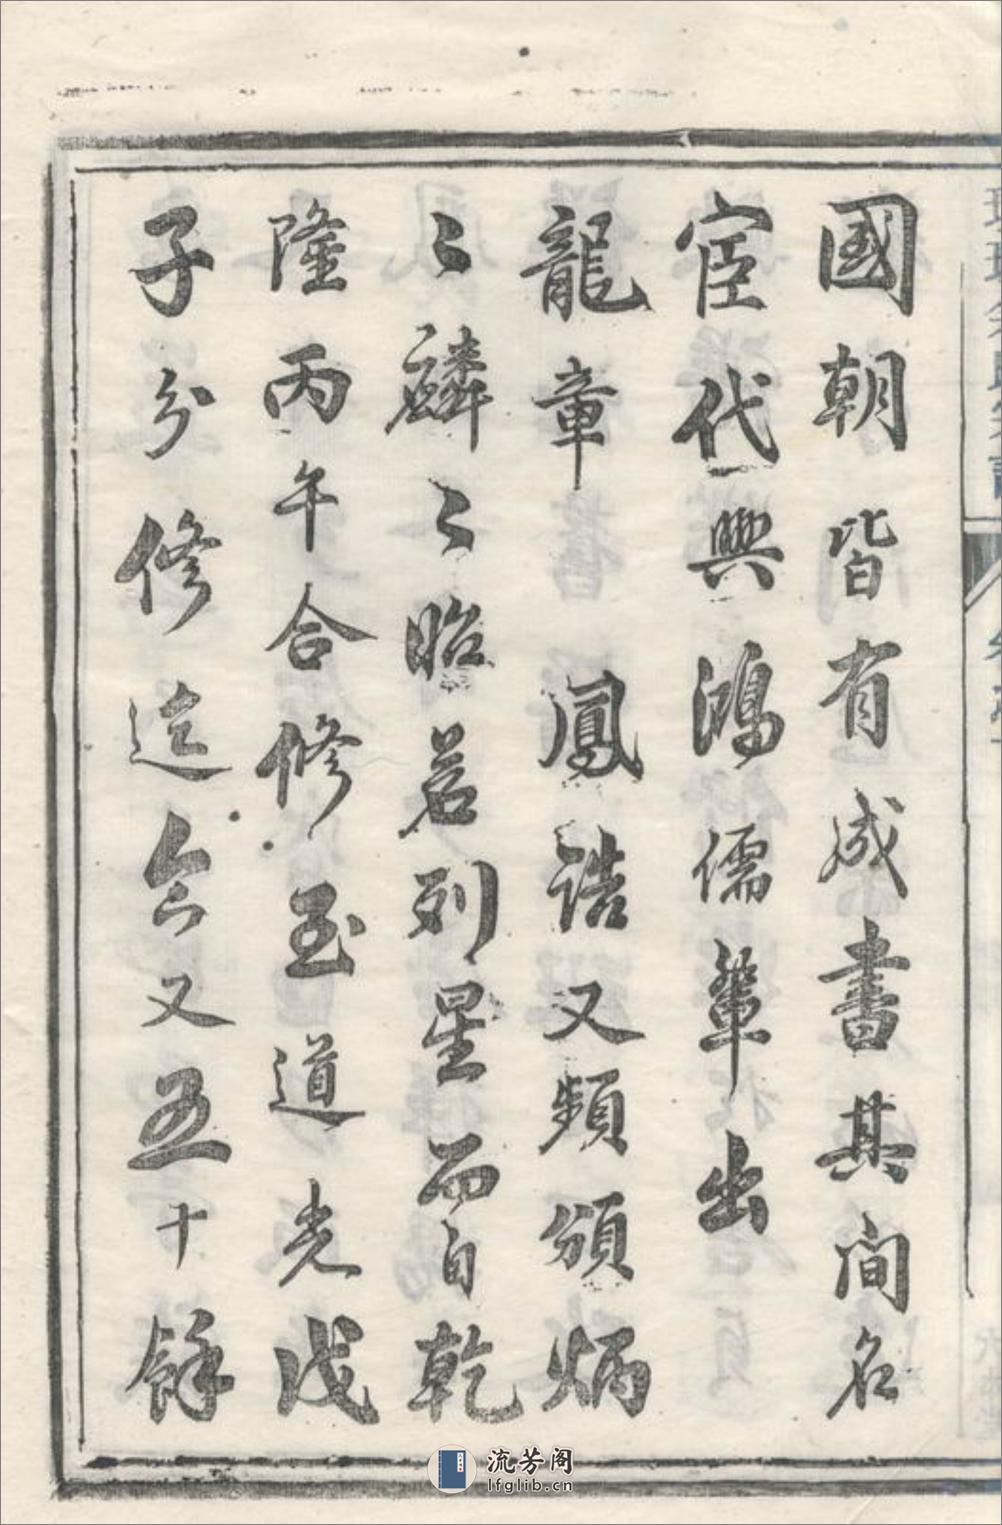 國朝皆有成書其間名
宦代興鴻儒輩出
龍章鳳誥又頻頒炳
〻麟〻昭若列星而自乾
隆丙午合修至道光戊
子分修迄今又五十餘
流芳阁
lfglib.cn